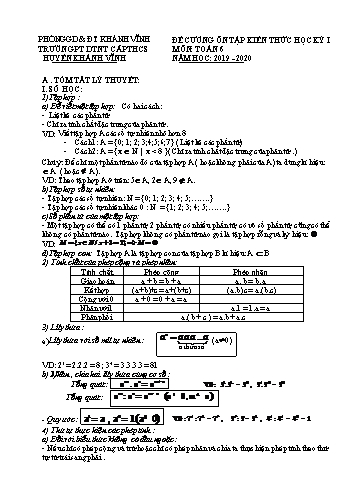 PHÒNG GD& ĐT KHÁNH VĨNH
ĐỀ CƯƠNG ÔN TẬP KIẾN THỨC HỌC KỲ I
TRƯỜNG PT DTNT CẤP THCS
MÔN TOÁN 6
HUYỆN KHÁNH VĨNH
NĂM HỌC: 2019 -2020
A . TÓM TẮT LÝ THUYẾT:
I. SỐ HỌC:
1)Tập hợp :
a) Để viết một tập hợp: Có hai cách:
- Liệt kê các phần tử
- Chỉ ra tính chất đặc trưng của phần tử.
VD: Viết tập hợp A các số tự nhiên nhỏ hơn 8
- Cách 1: A = {0; 1; 2; 3;4;5;6;7} ( Liệt kê các phần tử)
- Cách 2: A = {x ∈ N | x < 8 }( Chỉ ra tính chất đặc trưng của phần tử .)
Chú ý: Để chỉ một phần tử nào đó của tập hợp A ( hoặc không phải của A) ta dùng kí hiệu:
∈ A ( hoặc ∉ A).
VD: Theo tập hợp A ở trên : 5 ∈ A, 2 ∈ A, 9 ∉ A .
b)Tập hợp số tự nhiên:
- Tập hợp các số tự nhiên: N = {0; 1; 2; 3; 4; 5;……..}
- Tập hợp các số tự nhiên khác 0 : N = {1; 2; 3; 4; 5;…….}
c)Số phần tử của một tập hợp:
- Một tập hợp có thể có 1 phần tử 2 phần tử có nhiều phần tử có vô số phần tử cũng có thể
không có phần tử nào . Tập hợp không có phần tử nào gọi là tập hợp rỗng và ký hiệu: Ø
VD:
d)Tập hợp con: Tập hợp A là tập hợp con của tập hợp B kí hiệu: A ⊂ B
2) Tính chất của phép cộng và phép nhân:
Tính chất Phép cộng Phép nhân
Giao hoán a + b = b + a a. b = b. a
Kết hợp (a+b)+c = a+(b+c) (a.b).c = a.(b.c)
Cộng với 0 a + 0 = 0 + a = a
Nhân với 1 a.1 = 1.a = a
Phân phối a.( b + c ) = a.b + a.c
3) Lũy thừa :
a)Lũy thừa với số mũ tự nhiên: (a≠0)
VD: 2³ = 2.2.2 = 8 ; 3⁴ = 3.3.3.3 = 81
b) Nhân , chia hai lũy thừa cùng cơ số :
Tổng quát:
Tổng quát:
- Quy ước:
4) Thứ tự thực hiện các phép tính :
a) Đối với biểu thức không có dấu ngoặc :
- Nếu chỉ có phép cộng và trừ hoặc chỉ có phép nhân và chia ta thực hiện phép tính theo thứ
tự từ trái sang phải .